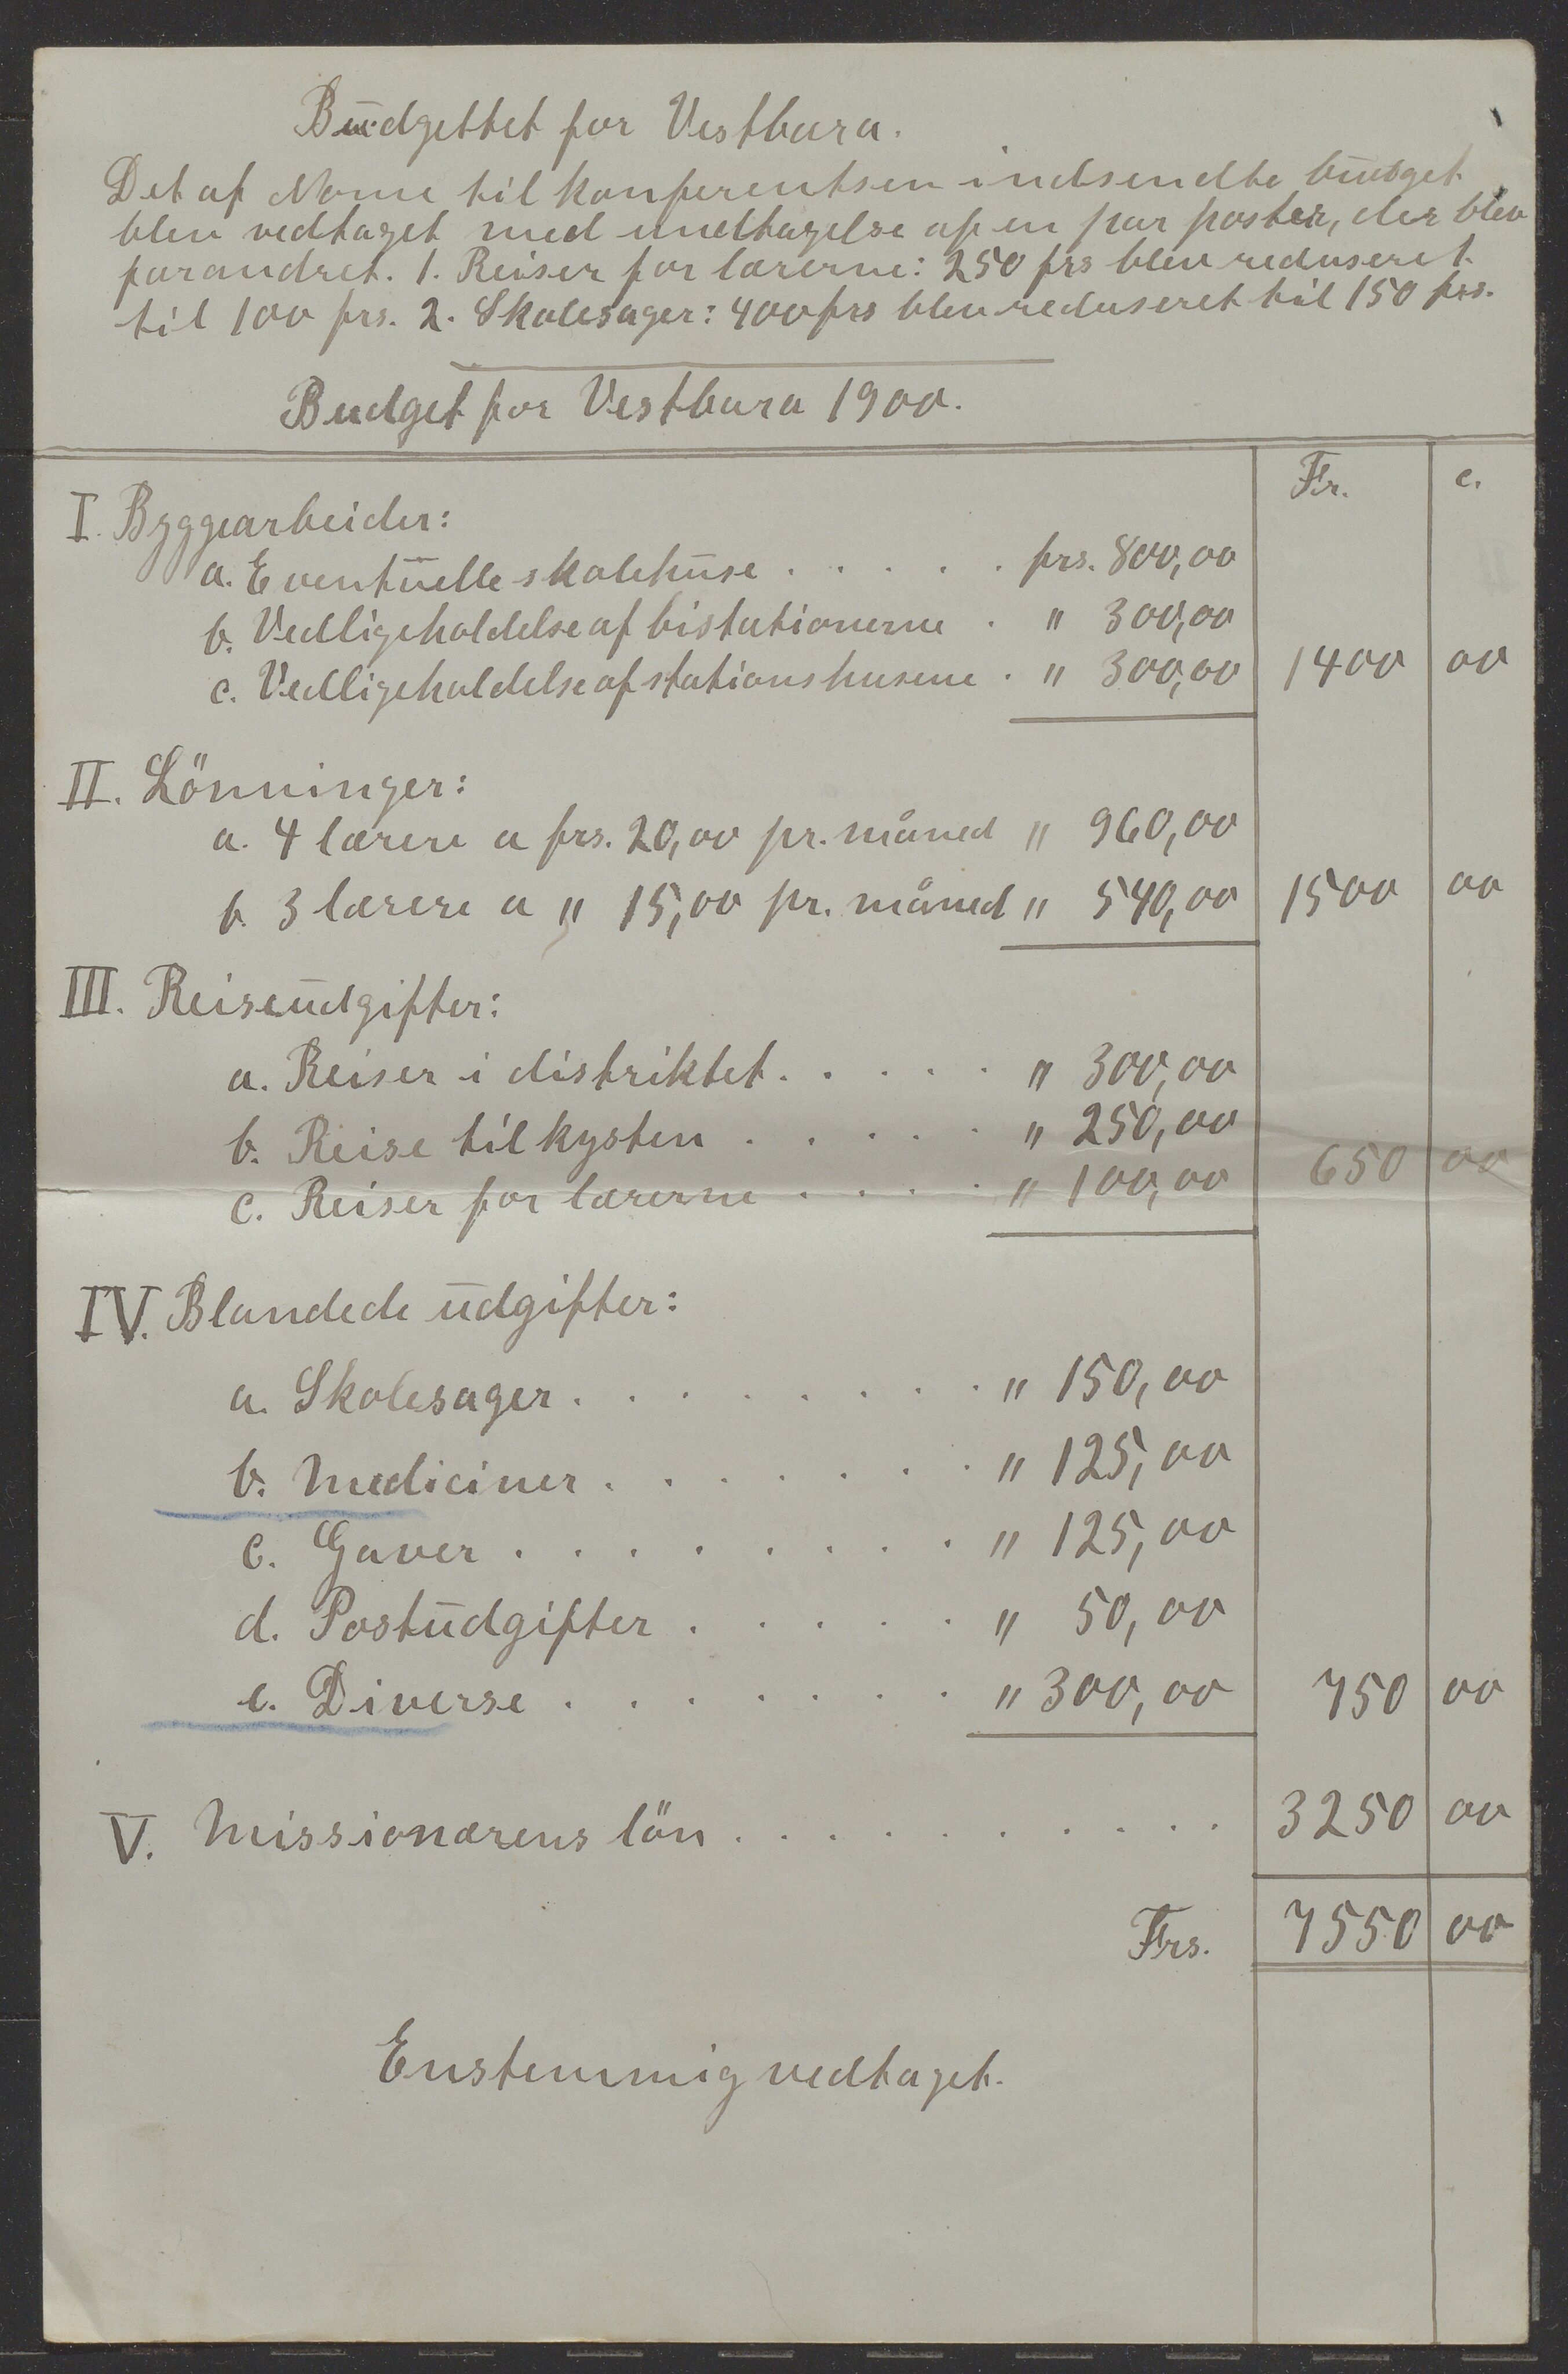 Budgettet for Vestbara.
Det af Nome til konferentsen indsendte budget
blev vedtaget med undtagelse af en par poster, der blev
forandret. 1. Reiser for lærerne: 250 frs blev reduseret
til 100 frs. 2. Skolesager: 400 frs blev reduseret til 150 frs.
Budget for Vestbara 1900.
Fr. c.
I. Byggearbeider:
a. Eventuelle skolehuse . . . . . frs. 800,00
b. Vedligeholdelse af bistationerne . " 300,00
c. Vedligeholdelse af stationshusene . " 300,00 1400 00
II. Lönninger:
a. 4 lærere a frs. 20,00 pr. måned " 960,00
b. 3 lærere a " 15,00 pr. måned " 540,00 1500 00
III. Reiseudgifter:
a. Reiser i distriktet . . . . . " 300,00
b. Reise til kysten . . . . . " 250,00
c. Reiser for lærerne . . . . " 100,00 650 00
IV. Blandede udgifter:
a. Skolesager . . . . . . . . " 150,00
b. Mediciner . . . . . . . " 125,00
c. Gaver . . . . . . . . " 125,00
d. Postudgifter . . . . . " 50,00
e. Diverse . . . . . . . " 300,00 750 00
V. Missionærens lön . . . . . . . . . . 3250 00
Frs. 7550 00
Enstemmig vedtaget.